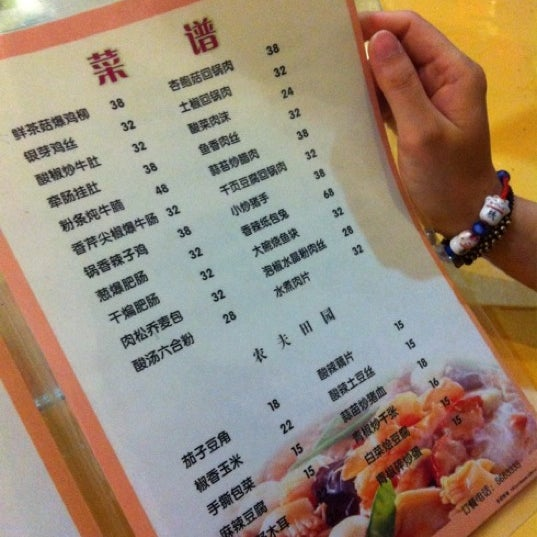 菜 谱
鲜茶菇爆鸡柳 38
银芽鸡丝 32
酸椒炒牛肚 32
牵肠挂肚 38
粉条炖牛腩 48
香芹尖椒爆牛肠 32
锅香辣子鸡 38
葱爆肥肠 32
干煸肥肠 32
肉松荞麦包 32
酸汤六合粉 28
杏鲍菇回锅肉 38
土椒回锅肉 32
酸菜肉沫 24
鱼香肉丝 32
蒜苔炒腊肉 38
千页豆腐回锅肉 32
小炒猪手 38
香辣纸包兔 68
大碗烧鱼块 38
泡椒水晶粉肉丝 32
水煮肉片 32
农夫田园
茄子豆角 18
椒香玉米 22
手撕包菜 15
麻辣豆腐 15
木耳
酸辣藕片 15
酸辣土豆丝 15
蒜苗炒猪血 18
青椒炒干张 16
白菜烩豆腐 15
订餐电话: